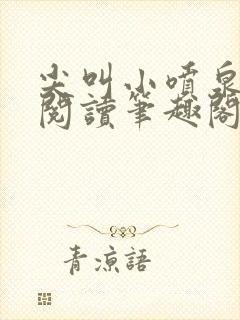 尖叫小噴泉
閱讀筆趣閣
青涼語